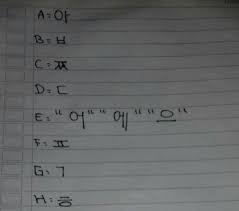 A=아
B=ㅂ
C=ㅉ
D=ㄷ
E="어" "에" "으"
F=ㅍ
G=ㄱ
H=ㅎ